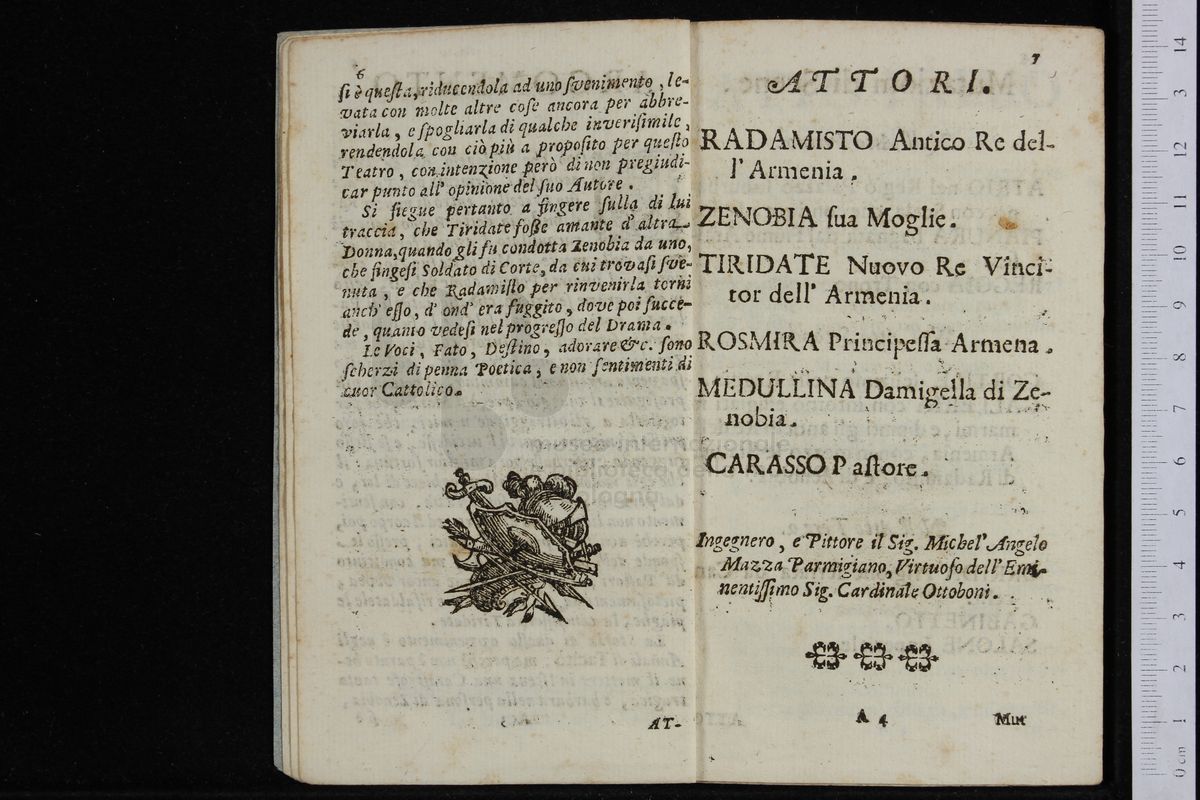 6
ſi è queſta, riducendola ad uno ſvenimento, le-
vata con molte altre coſe ancora per abbre-
viarla, e ſpogliarla di qualche inveriſimile,
rendendola con ciò più a propoſito per queſto
Teatro, con intenzione però di non pregiudi-
car punto all' opinione del ſuo Autore.
Si ſiegue pertanto a fingere ſulla di lui
traccia, che Tiridate foſſe amante d' altra
Donna, quando gli fu condotta Zenobia da uno,
che fingeſi Soldato di Corte, da cui trovaſi ſve-
nuta, e che Radamiſto per rinvenirla torni
anch' eſſo, d' ond' era fuggito, dove poi ſucce-
de, quanto vedeſi nel progreſſo del Drama.
Le Voci, Fato, Deſtino, adorare &c. ſono
ſcherzi di penna Poetica, e non ſentimenti di
cuor Cattolico.
AT-
7
ATTORI.
RADAMISTO Antico Re del-
l' Armenia.
ZENOBIA ſua Moglie.
TIRIDATE Nuovo Re Vinci-
tor dell' Armenia.
ROSMIRA Principeſſa Armena.
MEDULLINA Damigella di Ze-
nobia.
CARASSO Paſtore.
Ingegnero, e Pittore il Sig. Michel' Angelo
Mazza Parmigiano, Virtuoſo dell' Emi-
nentiſſimo Sig. Cardinale Ottoboni.
A 4
Mut
museo internazionale
biblioteca della
bologna
0 cm 1 2 3 4 5 6 7 8 9 10 11 12 13 14